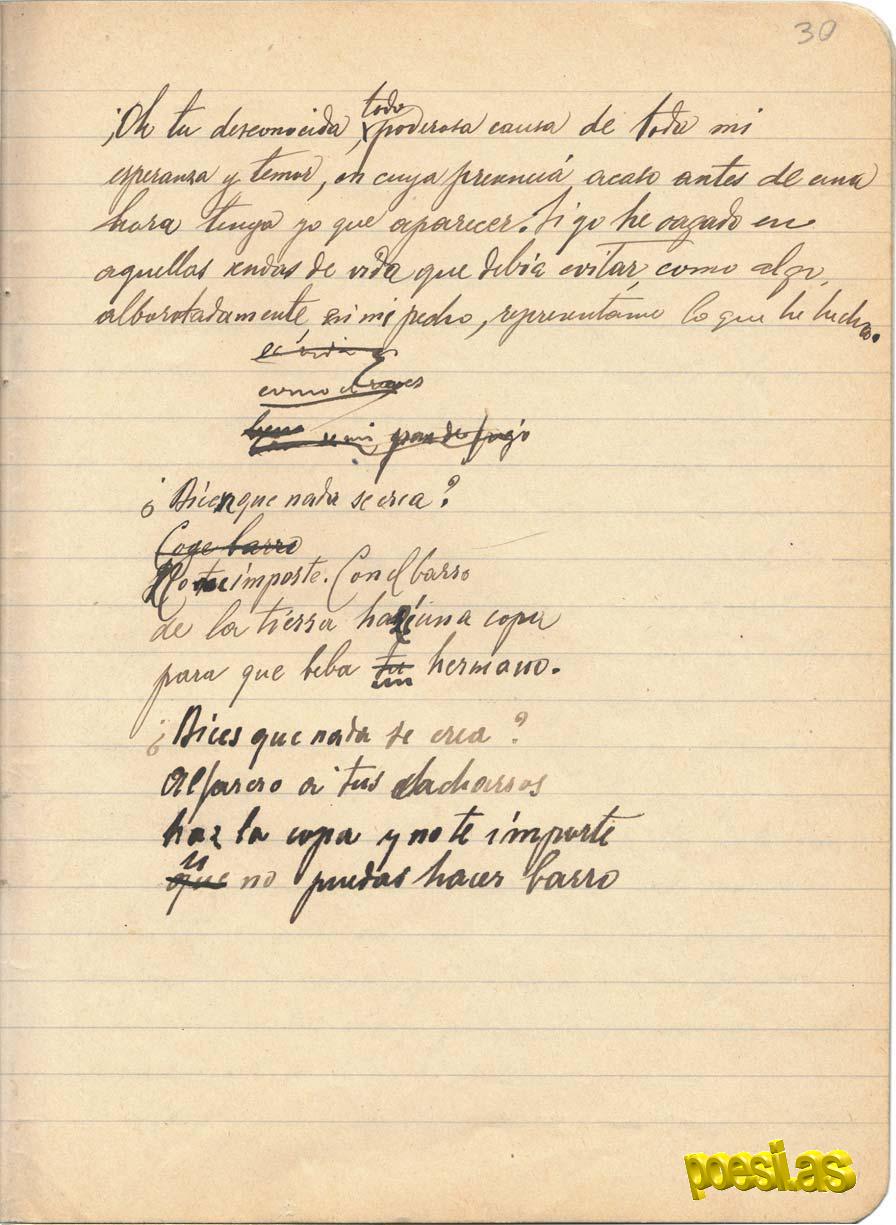 30
¡Oh tu desconocida, todo poderosa causa de toda mi
esperanza y temor, en cuya presencia acaso antes de una
hora tenga yo que aparecer. Si yo he vagado en
aquellas sendas de vida que debía evitar, como algo,
alborotadamente, en mi pecho, representame lo que he hecho.
como
¿Dicen que nada se crea?
Coge barro
No te importe. Con el barro
de la tierra haz una copa
para que beba tu hermano.
¿Dices que nada se crea?
Alfarero a tus cacharros
haz la copa y no te importe
si que no puedas hacer barro
poesi.as